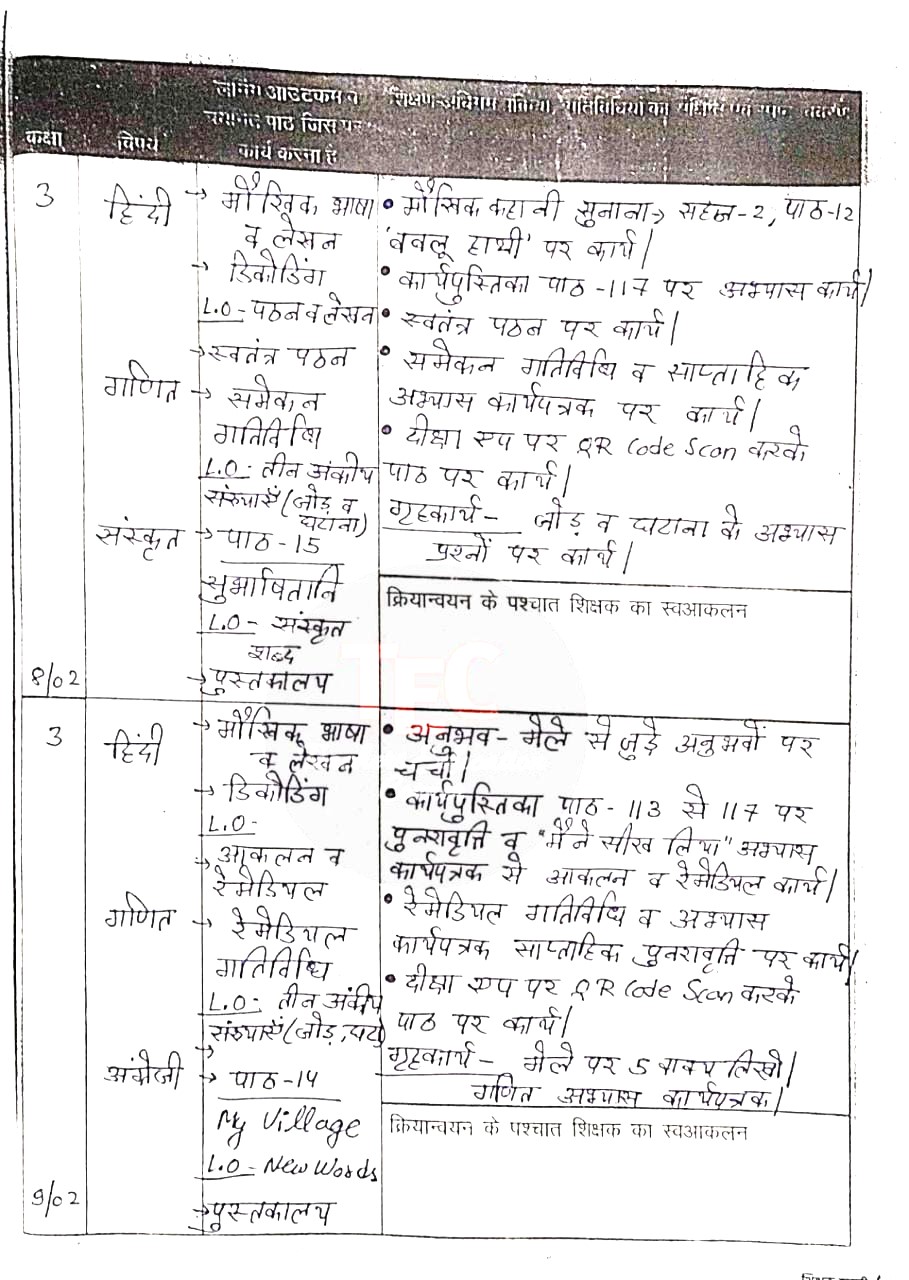 कक्षा
विषय
लर्निंग आउटकम व
पाठ जिस पर
कार्य करना है
3
हिंदी
→ मौखिक भाषा
व लेखन
→ डिकोडिंग
L.O - पठन व लेखन
→ स्वतंत्र पठन
गणित
→ समेकन
गतिविधि
L.O - तीन अंकीय
संख्याएँ (जोड़ व
घटाना)
संस्कृत
→ पाठ - 15
सुभाषितानि
L.O - संस्कृत
शब्द
→ पुस्तकालय
8/02
• मौखिक कहानी सुनाना → सहज - 2, पाठ - 12
'बबलू हाथी' पर कार्य|
• कार्यपुस्तिका पाठ - 117 पर अभ्यास कार्य|
• स्वतंत्र पठन पर कार्य|
• समेकन गतिविधि व साप्ताहिक
अभ्यास कार्यपत्रक पर कार्य|
• दीक्षा एप पर QR Code Scan करके
पाठ पर कार्य|
गृहकार्य - जोड़ व घटाना के अभ्यास
प्रश्नों पर कार्य|
क्रियान्वयन के पश्चात शिक्षक का स्वआकलन
TEC
3
हिंदी
→ मौखिक भाषा
व लेखन
→ डिकोडिंग
L.O -
→ आकलन व
रेमेडियल
गणित
→ रेमेडियल
गतिविधि
L.O - तीन अंकीय
संख्याएँ (जोड़, घटा)
अंग्रेजी
→ पाठ - 14
My Village
L.O - New Words
→ पुस्तकालय
9/02
• अनुभव - मेले से जुड़े अनुभवों पर
चर्चा|
• कार्यपुस्तिका पाठ - 113 से 117 पर
पुनरावृत्ति व "मैंने सीख लिया" अभ्यास
कार्यपत्रक से आकलन व रेमेडियल कार्य|
• रेमेडियल गतिविधि व अभ्यास
कार्यपत्रक साप्ताहिक पुनरावृत्ति पर कार्य|
• दीक्षा एप पर QR Code Scan करके
पाठ पर कार्य|
गृहकार्य - मेले पर 5 वाक्य लिखो|
गणित अभ्यास कार्यपत्रक|
क्रियान्वयन के पश्चात शिक्षक का स्वआकलन